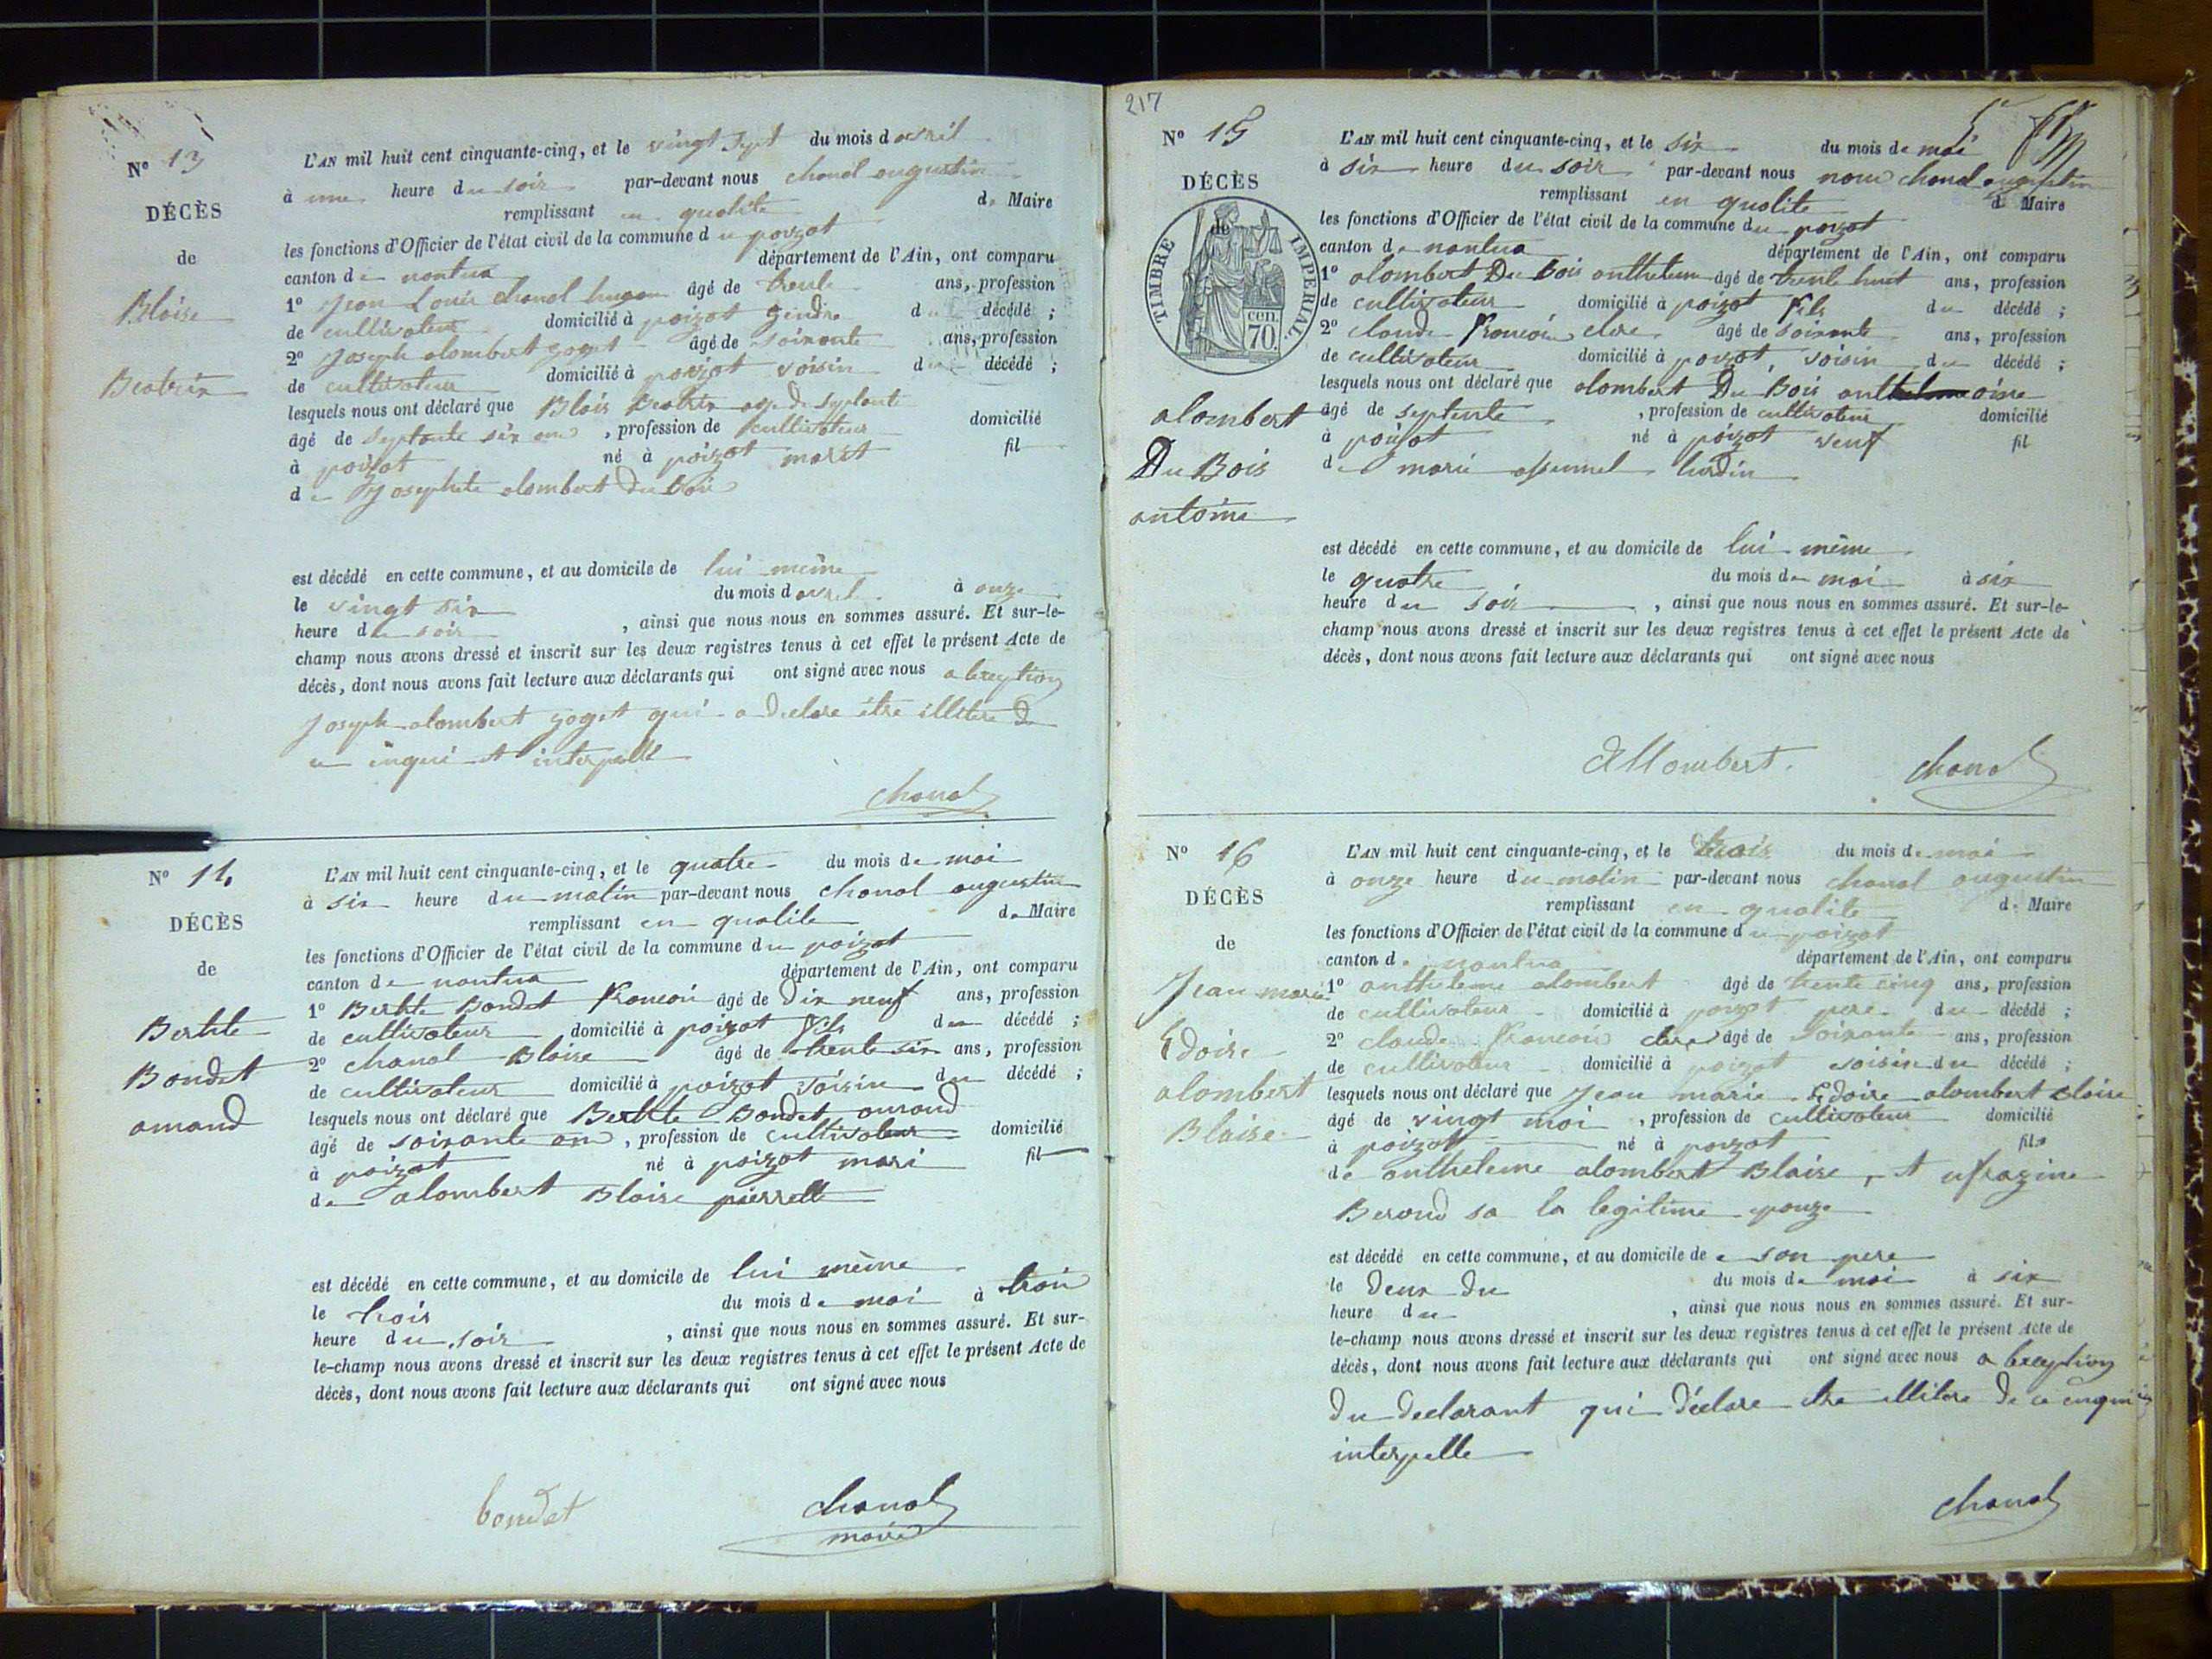 N° 13
DÉCÈS
de
Blaise
Beatrix
L'AN mil huit cent cinquante-cinq, et le vingt sept du mois d avril
à une heure du soir par-devant nous chanal augustin
remplissant en qualité de Maire
les fonctions d'Officier de l'état civil de la commune du poizat
canton de nantua département de l'Ain, ont comparu
1° Jean Louis chanal âgé de trente ans, profession
de cultivateur domicilié à poizat gendre du décédé ;
2° Joseph alombert goget âgé de soixante ans, profession
de cultivateur domicilié à poizat voisin du décédé ;
lesquels nous ont déclaré que Blais Beatrix age de septante
âgé de septante six ans, profession de cultivateur domicilié
à poizat né à poizat marit fil
de Josephete alombert du bois
est décédé en cette commune, et au domicile de lui même
le vingt six du mois d avril à onze
heure du soir, ainsi que nous nous en sommes assuré. Et sur-le-
champ nous avons dressé et inscrit sur les deux registres tenus à cet effet le présent Acte de
décès, dont nous avons fait lecture aux déclarants qui ont signé avec nous a lexeption
Joseph alombert goget qui a declare être illitere de
ce enqui et interpelle
chanal
N° 14
DÉCÈS
de
Bertete
Bondet
amand
L'AN mil huit cent cinquante-cinq, et le quatre du mois de mai
à six heure du matin par-devant nous chanal augustin
remplissant en qualite de Maire
les fonctions d'Officier de l'état civil de la commune du poizat
canton de nantua département de l'Ain, ont comparu
1° Bertete Bondet francois âgé de dix neuf ans, profession
de cultivateur domicilié à poizat fils du décédé ;
2° chanal Blaise âgé de trente six ans, profession
de cultivateur domicilié à poizat voisin du décédé ;
lesquels nous ont déclaré que Bertete Bondet amand
âgé de soixante ans, profession de cultivateur domicilié
à poizat né à poizat mari fil
de alombert Blaise pierrette
est décédé en cette commune, et au domicile de lui même
le trois du mois de mai à trois
heure du soir, ainsi que nous nous en sommes assuré. Et sur-
le-champ nous avons dressé et inscrit sur les deux registres tenus à cet effet le présent Acte de
décès, dont nous avons fait lecture aux déclarants qui ont signé avec nous
bondet
chanal
maire
217
N° 15
DÉCÈS
de
TIMBRE IMPERIAL
cen.
70.
alombert
Du Bois
antoine
L'AN mil huit cent cinquante-cinq, et le six du mois de mai
à six heure du soir par-devant nous nous chanal augustin
remplissant en qualite de Maire
les fonctions d'Officier de l'état civil de la commune du poizat
canton de nantua département de l'Ain, ont comparu
1° alombert Du Bois antheleme âgé de trente huit ans, profession
de cultivateur domicilié à poizat fils du décédé ;
2° claude francois clere âgé de soixante ans, profession
de cultivateur domicilié à poizat, voisin du décédé ;
lesquels nous ont déclaré que alombert Du Bois antoine
âgé de septente, profession de cultivateur domicilié
à poizat né à poizat veuf fil
de marie
est décédé en cette commune, et au domicile de lui même
le quatre du mois de mai à six
heure du soir, ainsi que nous nous en sommes assuré. Et sur-le-
champ nous avons dressé et inscrit sur les deux registres tenus à cet effet le présent Acte de
décès, dont nous avons fait lecture aux déclarants qui ont signé avec nous
Allombert.
chanal
N° 16
DÉCÈS
de
Jean marie
Edoire
alombert
Blaise
L'AN mil huit cent cinquante-cinq, et le trois du mois de mai
à onze heure du matin par-devant nous chanal augustin
remplissant en qualite de Maire
les fonctions d'Officier de l'état civil de la commune du poizat
canton de nantua département de l'Ain, ont comparu
1° antheleme alombert âgé de trente cinq ans, profession
de cultivateur domicilié à poizat pere du décédé ;
2° claude francois clere âgé de soixante ans, profession
de cultivateur domicilié à poizat voisin du décédé ;
lesquels nous ont déclaré que Jean marie Edoire alombert Blaise
âgé de vingt moi, profession de cultivateur domicilié
à poizat né à poizat fils
de antheleme alombert Blaise, et ufrazine
Berond sa la legitime epouze
est décédé en cette commune, et au domicile de son pere
le deux du du mois de mai à six
heure du, ainsi que nous nous en sommes assuré. Et sur-
le-champ nous avons dressé et inscrit sur les deux registres tenus à cet effet le présent Acte de
décès, dont nous avons fait lecture aux déclarants qui ont signé avec nous a lexception
du declarant qui déclare etre illitere de ce enqui
interpelle
chanal